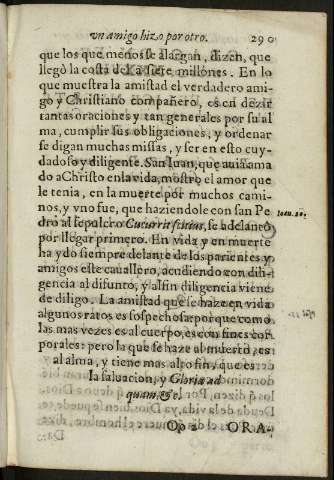 un amigo hizo por otro. 290
que los que menos se alargan, dizen, que
llegò la costa de a siete millones. En lo
que muestra la amistad el verdadero ami-
go y Christiano compañero, es en dezir
tantas oraciones y tan generales por su al
ma, cumplir sus obligaciones, y ordenar
se digan muchas missas, y ser en esto cuy-
dadoso y diligente. San Iuan, que auia ama
do a Christo en la vida, mostro el amor que
le tenia, en la muerte por muchos cami-
nos, y vno fue, que haziendole con san Pe
dro al sepulcro Cucurrit citius, se adelantò
Ioan. 20.
por llegar primero. En vida y en muerte
ha ydo siempre delante de los parientes y
amigos este cauallero, acudiendo con dili-
gencia al difunto, y al fin diligencia viene
de diligo. La amistad que se haze en vida
algunos ratos es sospechosa: porque como
las mas vezes es al cuerpo, es con fines cor
porales: pero la que se haze al muerto, es
al alma, y tiene mas alto fin, que es
la saluacion, y Gloria ad
quam, &c.
Oo 2 ORA-